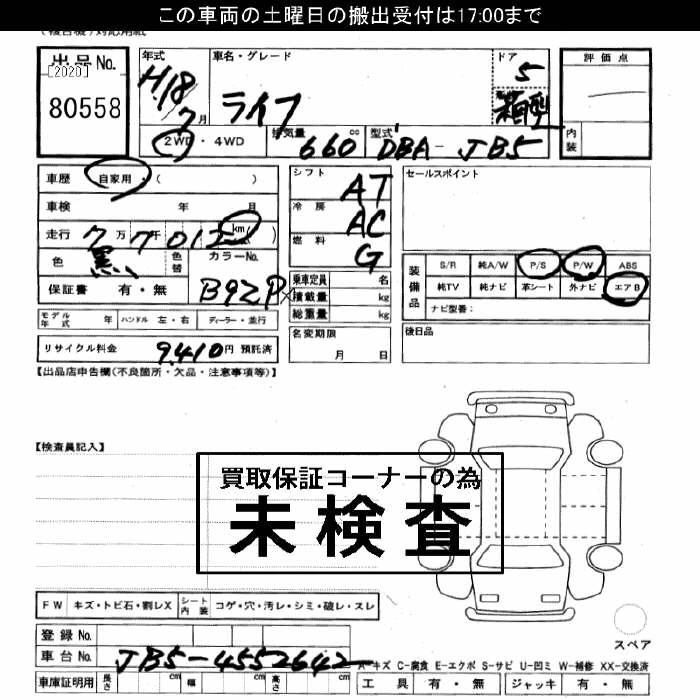 この車両の土曜日の搬出受付は17:00まで
出品No.
[2020]
80558
年式
H.18
7月
車名・グレード
ライフ
ドア
5
箱型
評価点
内装
2WD・4WD
排気量
660 cc
型式
DBA-JB5
車歴 自家用 ( )
車検 年 月
走行 7万7千012 km
色 黒 色替 カラーNo.
B92P
保証書 有・無
シフト AT
冷房 AC
燃料 G
乗車定員 名
積載量 kg
総重量 kg
名変期限
月 日
セールスポイント
装備品
S/R 純A/W P/S P/W ABS
純TV 純ナビ 革シート 外ナビ エアB
ナビ型番:
後日品
モデル年式 年 ハンドル 左・右 ディーラー・並行
リサイクル料金 9,410円 預託済
【出品店申告欄(不良箇所・欠品・注意事項等)】
【検査員記入】
買取保証コーナーの為
未検査
FW キズ・トビ石・割レX シート内装 コゲ・穴・汚レ・シミ・破レ・スレ
スペア
登録No.
車台No. JB5-4552642
A-キズ C-腐食 E-エクボ S-サビ U-凹ミ W-補修 XX-交換済
車庫証明用 長さ cm 幅 cm 高さ cm
工具 有・無 ジャッキ 有・無